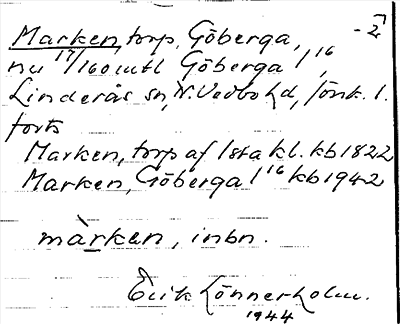 Marken, torp, Göberga, -2
nu 17/160 mtl Göberga 1 16
Linderås sn, N. Vedbo hd, Jönk. l.
forts
Marken, torp af 1sta kl. kb 1822
Marken, Göberga 1 16 kb 1942
màrken, inbn.
Erik Lönnerholm.
1944